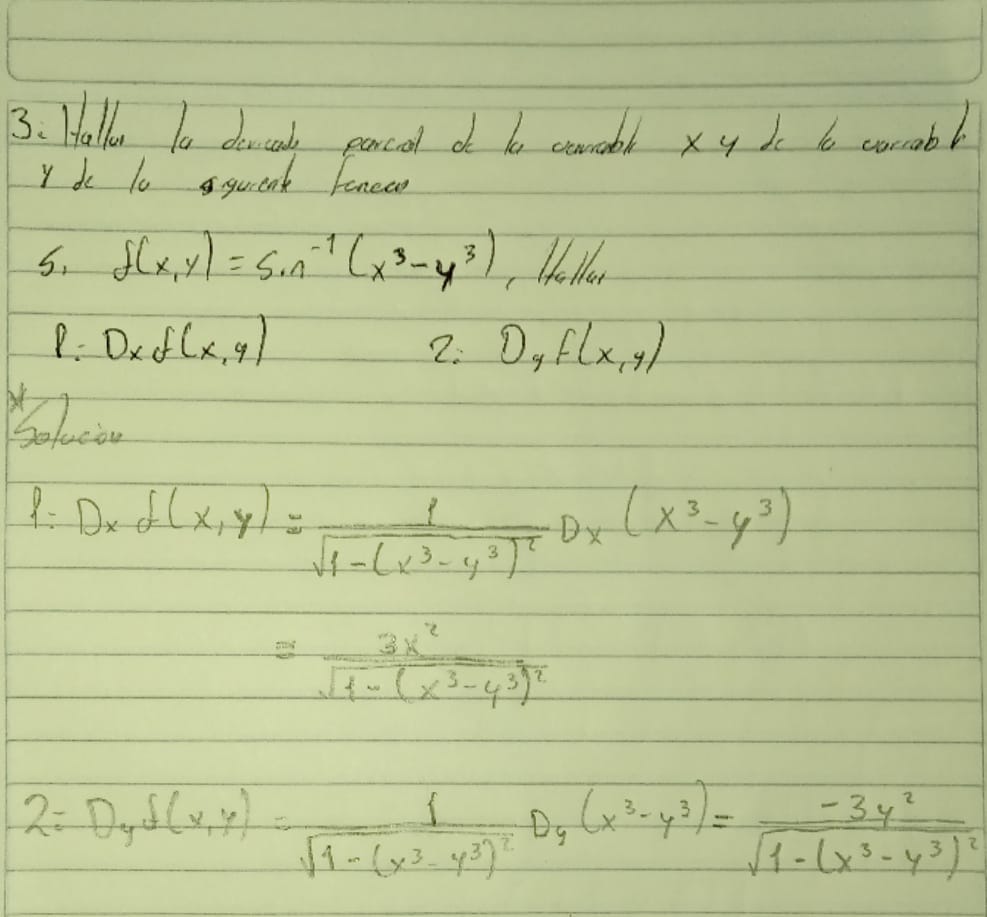 3: Hallar la derivada parcial de la variable x y de la variable
y de la siguiente funcion
Si f(x,y) = Sin⁻¹ (x³-y³), Hallar
1: Dx f(x,y) 2: Dy f(x,y)
* Solución
1: Dx f(x,y) = 1/√(1-(x³-y³)²) Dx (x³-y³)
= 3x²/√(1-(x³-y³)²)
2: Dy f(x,y) = 1/√(1-(x³-y³)²) Dy (x³-y³) = -3y²/√(1-(x³-y³)²)